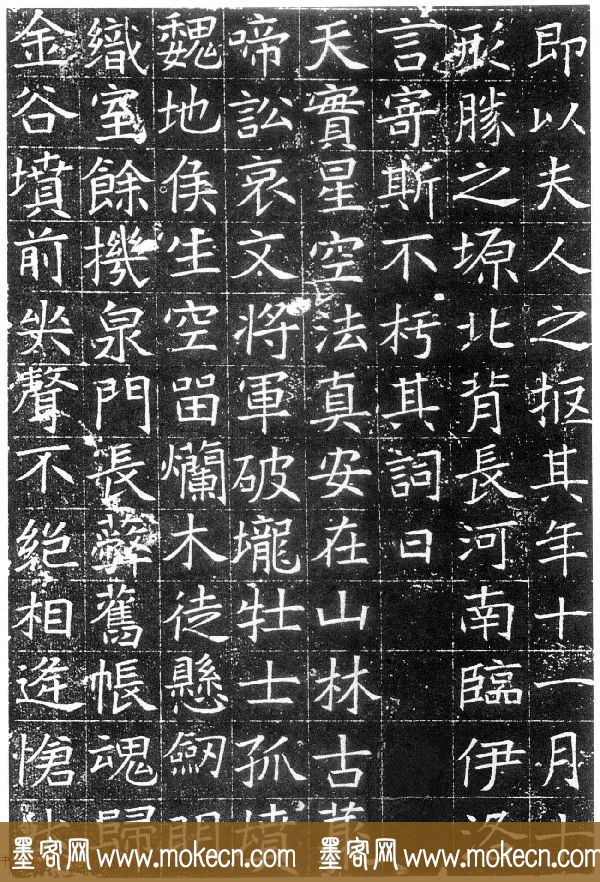 即以夫人之柩其年十一月十
形勝之塬北背長河南臨伊洛
言寄斯不朽其詞曰
天實星空法真安在山林古
啼訟哀文將軍破壠牡士孤墳
魏地侯生空留爛木徒懸劒
織室餘機泉門長薜舊帳魂歸
金谷墳前哭聲不絕相迸愴
墨客网 www.mokecn.com 墨客网 www.mokecn.com